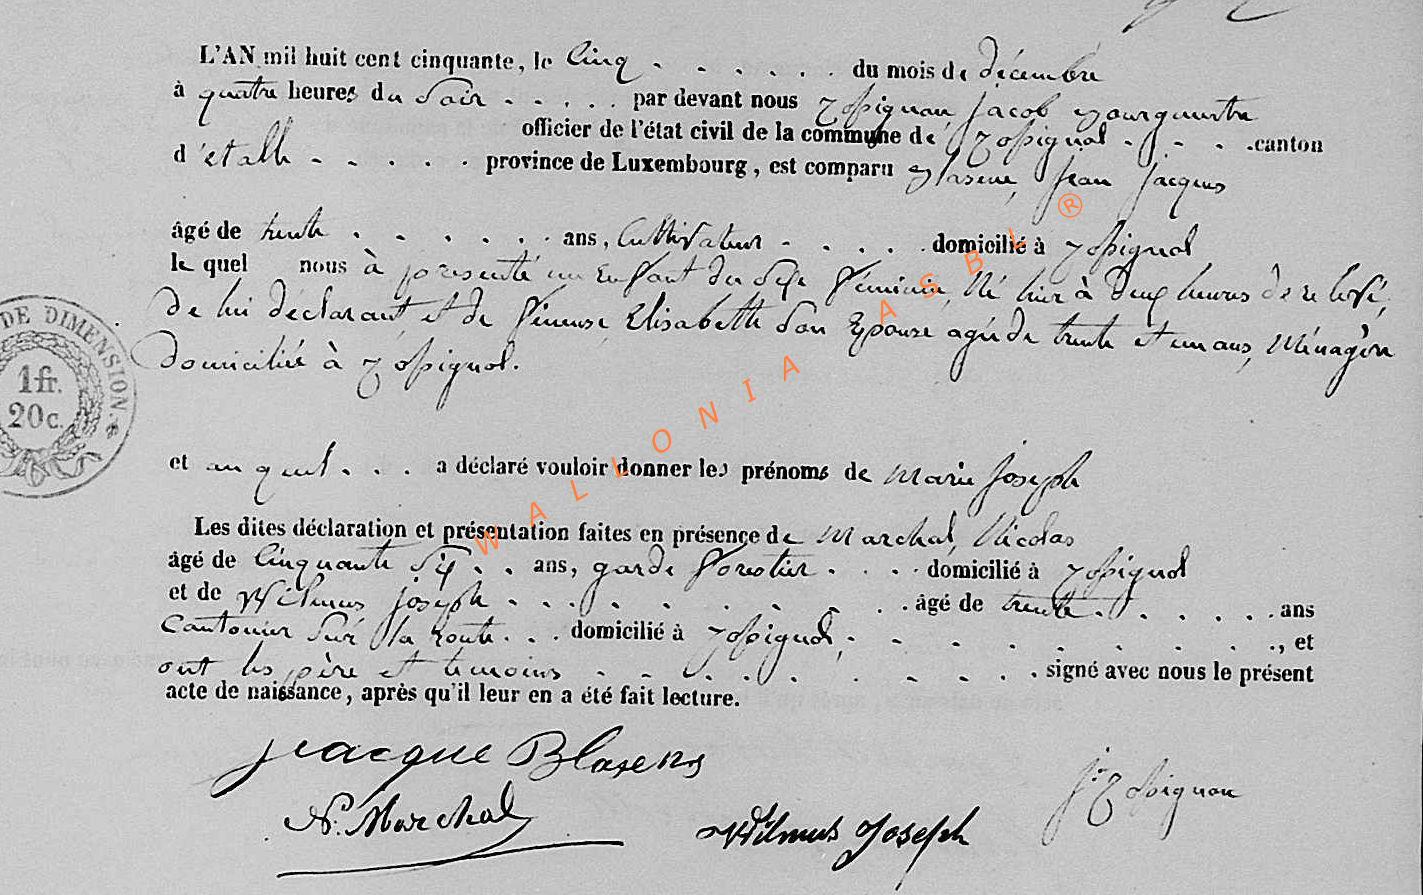 L'AN mil huit cent cinquante, le Cinq . . . . . . du mois de décembre
à quatre heures du Soir . . . . . par devant nous Jacob Bourgmestre
officier de l'état civil de la commune de . . . . canton
d'étalle . . . . . province de Luxembourg, est comparu Jean Jacques
âgé de trente . . . . . . ans, Cultivateur . . . . . domicilié à
le quel nous à présenté un Enfant du Sexe féminin, Né hier à Deux heures de relevé,
De lui déclarant, et de Elisabeth Son Epouse agée de trente et un ans, Ménagère
Domiciliée à
et au quel . . . a déclaré vouloir donner les prénoms de Marie Joseph
Les dites déclaration et présentation faites en présence de Marchal, Nicolas
âgé de Cinquante Six . . ans, garde forestier . . . . domicilié à
et de Wilmus joseph . . . . . . . . . . âgé de trente . . . . . . ans
Cantonier Sur la route . . . domicilié à . . . . . . . . , et
ont les père et temoins . . . . . . . . . . signé avec nous le présent
acte de naissance, après qu'il leur en a été fait lecture.
DE DIMENSION.
1 fr.
20 c.
WALLONIA ASBL ®
Jeacque Blasens
N. Marchal
Wilmus Joseph